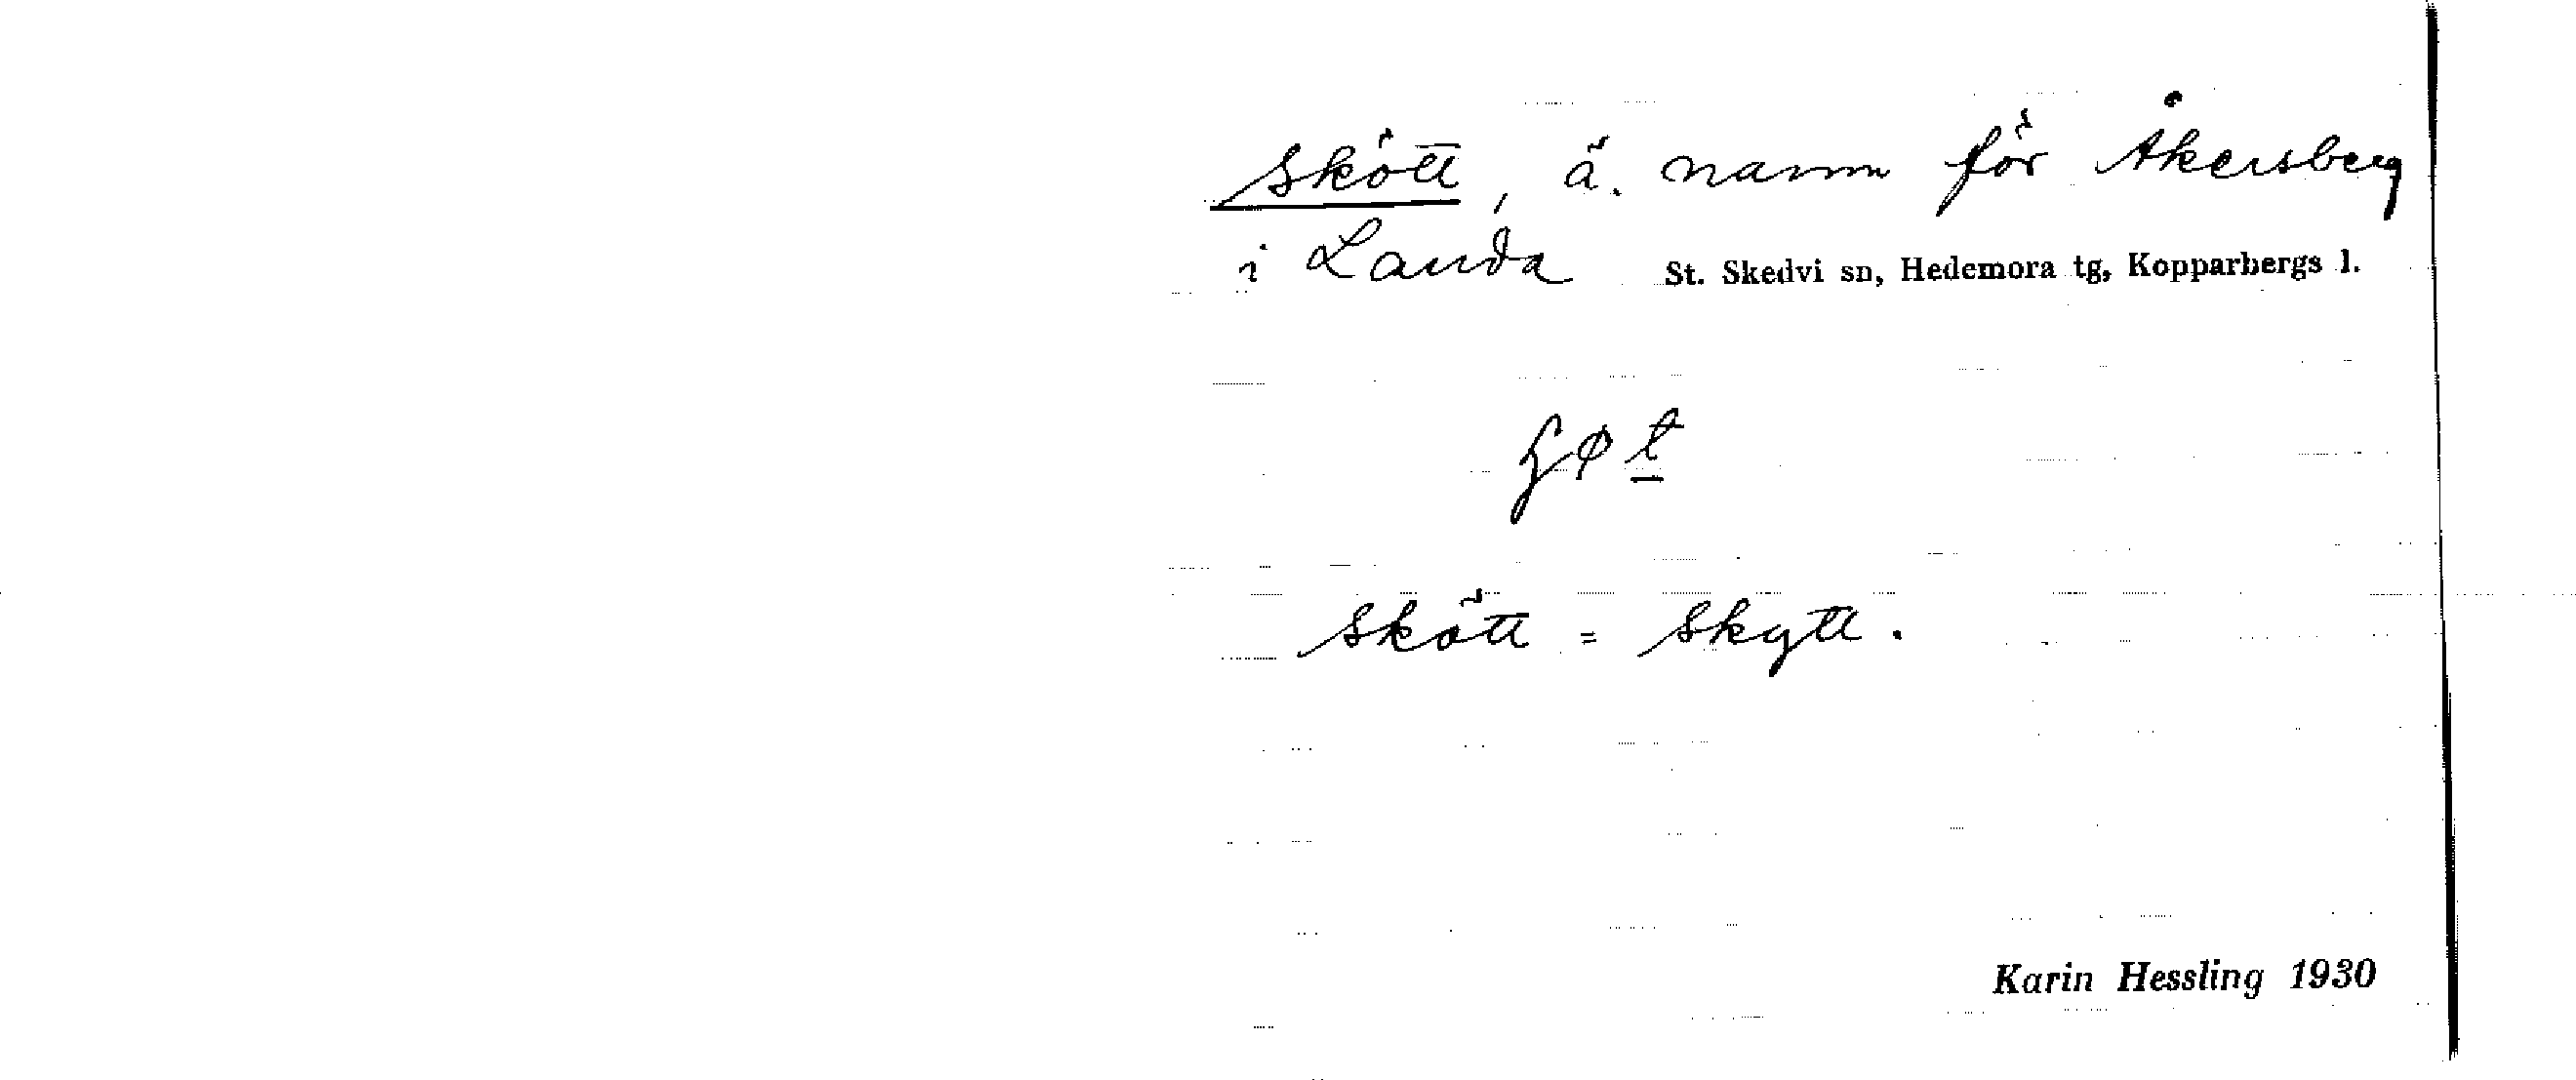 Skött, ä. namn för Åkersberg
i Landa St. Skedvi sn, Hedemora tg, Kopparbergs l.
skött = skytt.
Karin Hessling 1930